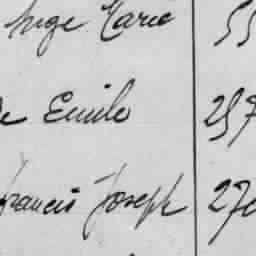 Ange Marie 55
de Emile 257
Francis Joseph 270